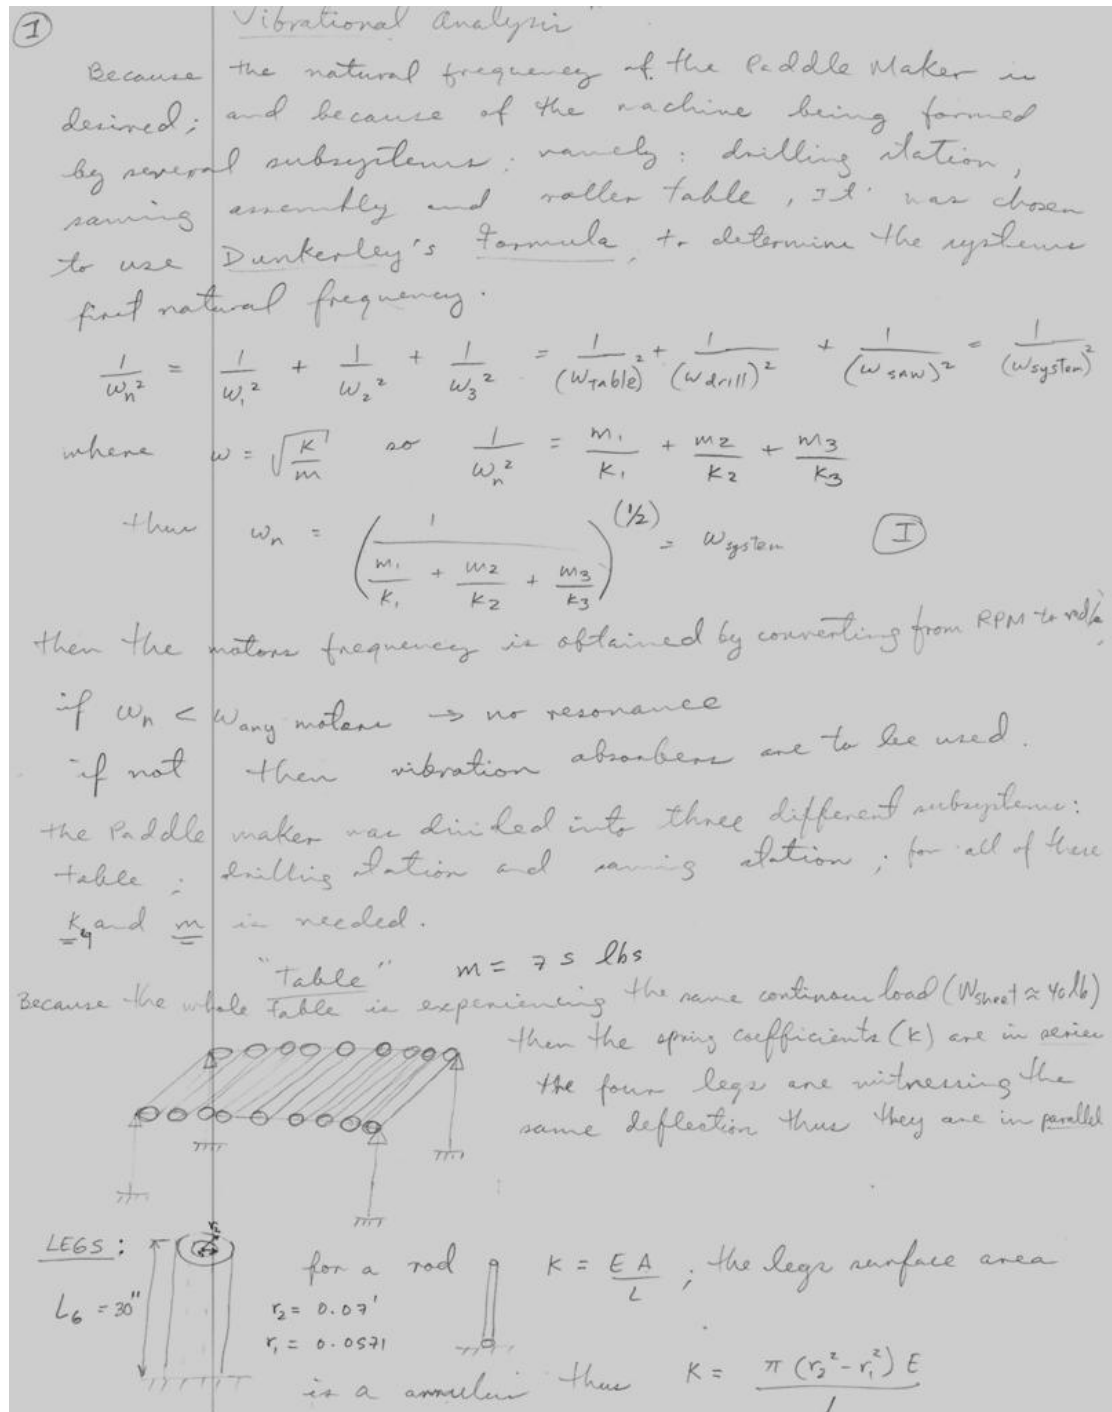 I
Vibrational Analysis"
Because the natural frequency of the Paddle Maker is
desired; and because of the machine being formed
by several subsystems: namely: drilling station,
sawing assembly and roller table, It was chosen
to use Dunkerley's Formula, to determine the systems
first natural frequency.
1/ωn² = 1/ω1² + 1/ω2² + 1/ω3² = 1/(ωTable)² + 1/(ωdrill)² + 1/(ωSAW)² = 1/(ωsystem)²
where ω = √(K/m) so 1/ωn² = m1/K1 + m2/K2 + m3/K3
thus ωn = (1/(m1/K1 + m2/K2 + m3/K3))^(1/2) = ωsystem I
then the motors frequency is obtained by converting from RPM to rad/s,
if ωn < ωany motors → no resonance
if not then vibration absorbers are to be used.
the Paddle maker was divided into three different subsystems:
table; drilling station and sawing station; for all of these
K and m is needed.
"Table" m = 75 lbs
Because the whole table is experiencing the same continous load (Wsheet ≈ 40 lb)
then the spring coefficients (K) are in series
the four legs are witnessing the
same deflection thus they are in parallel
LEGS:
for a rod K = EA/L; the legs surface area
L6 = 30"
r2 = 0.07'
r1 = 0.0571
is a annulus thus K = π(r2² - r1²)E/L